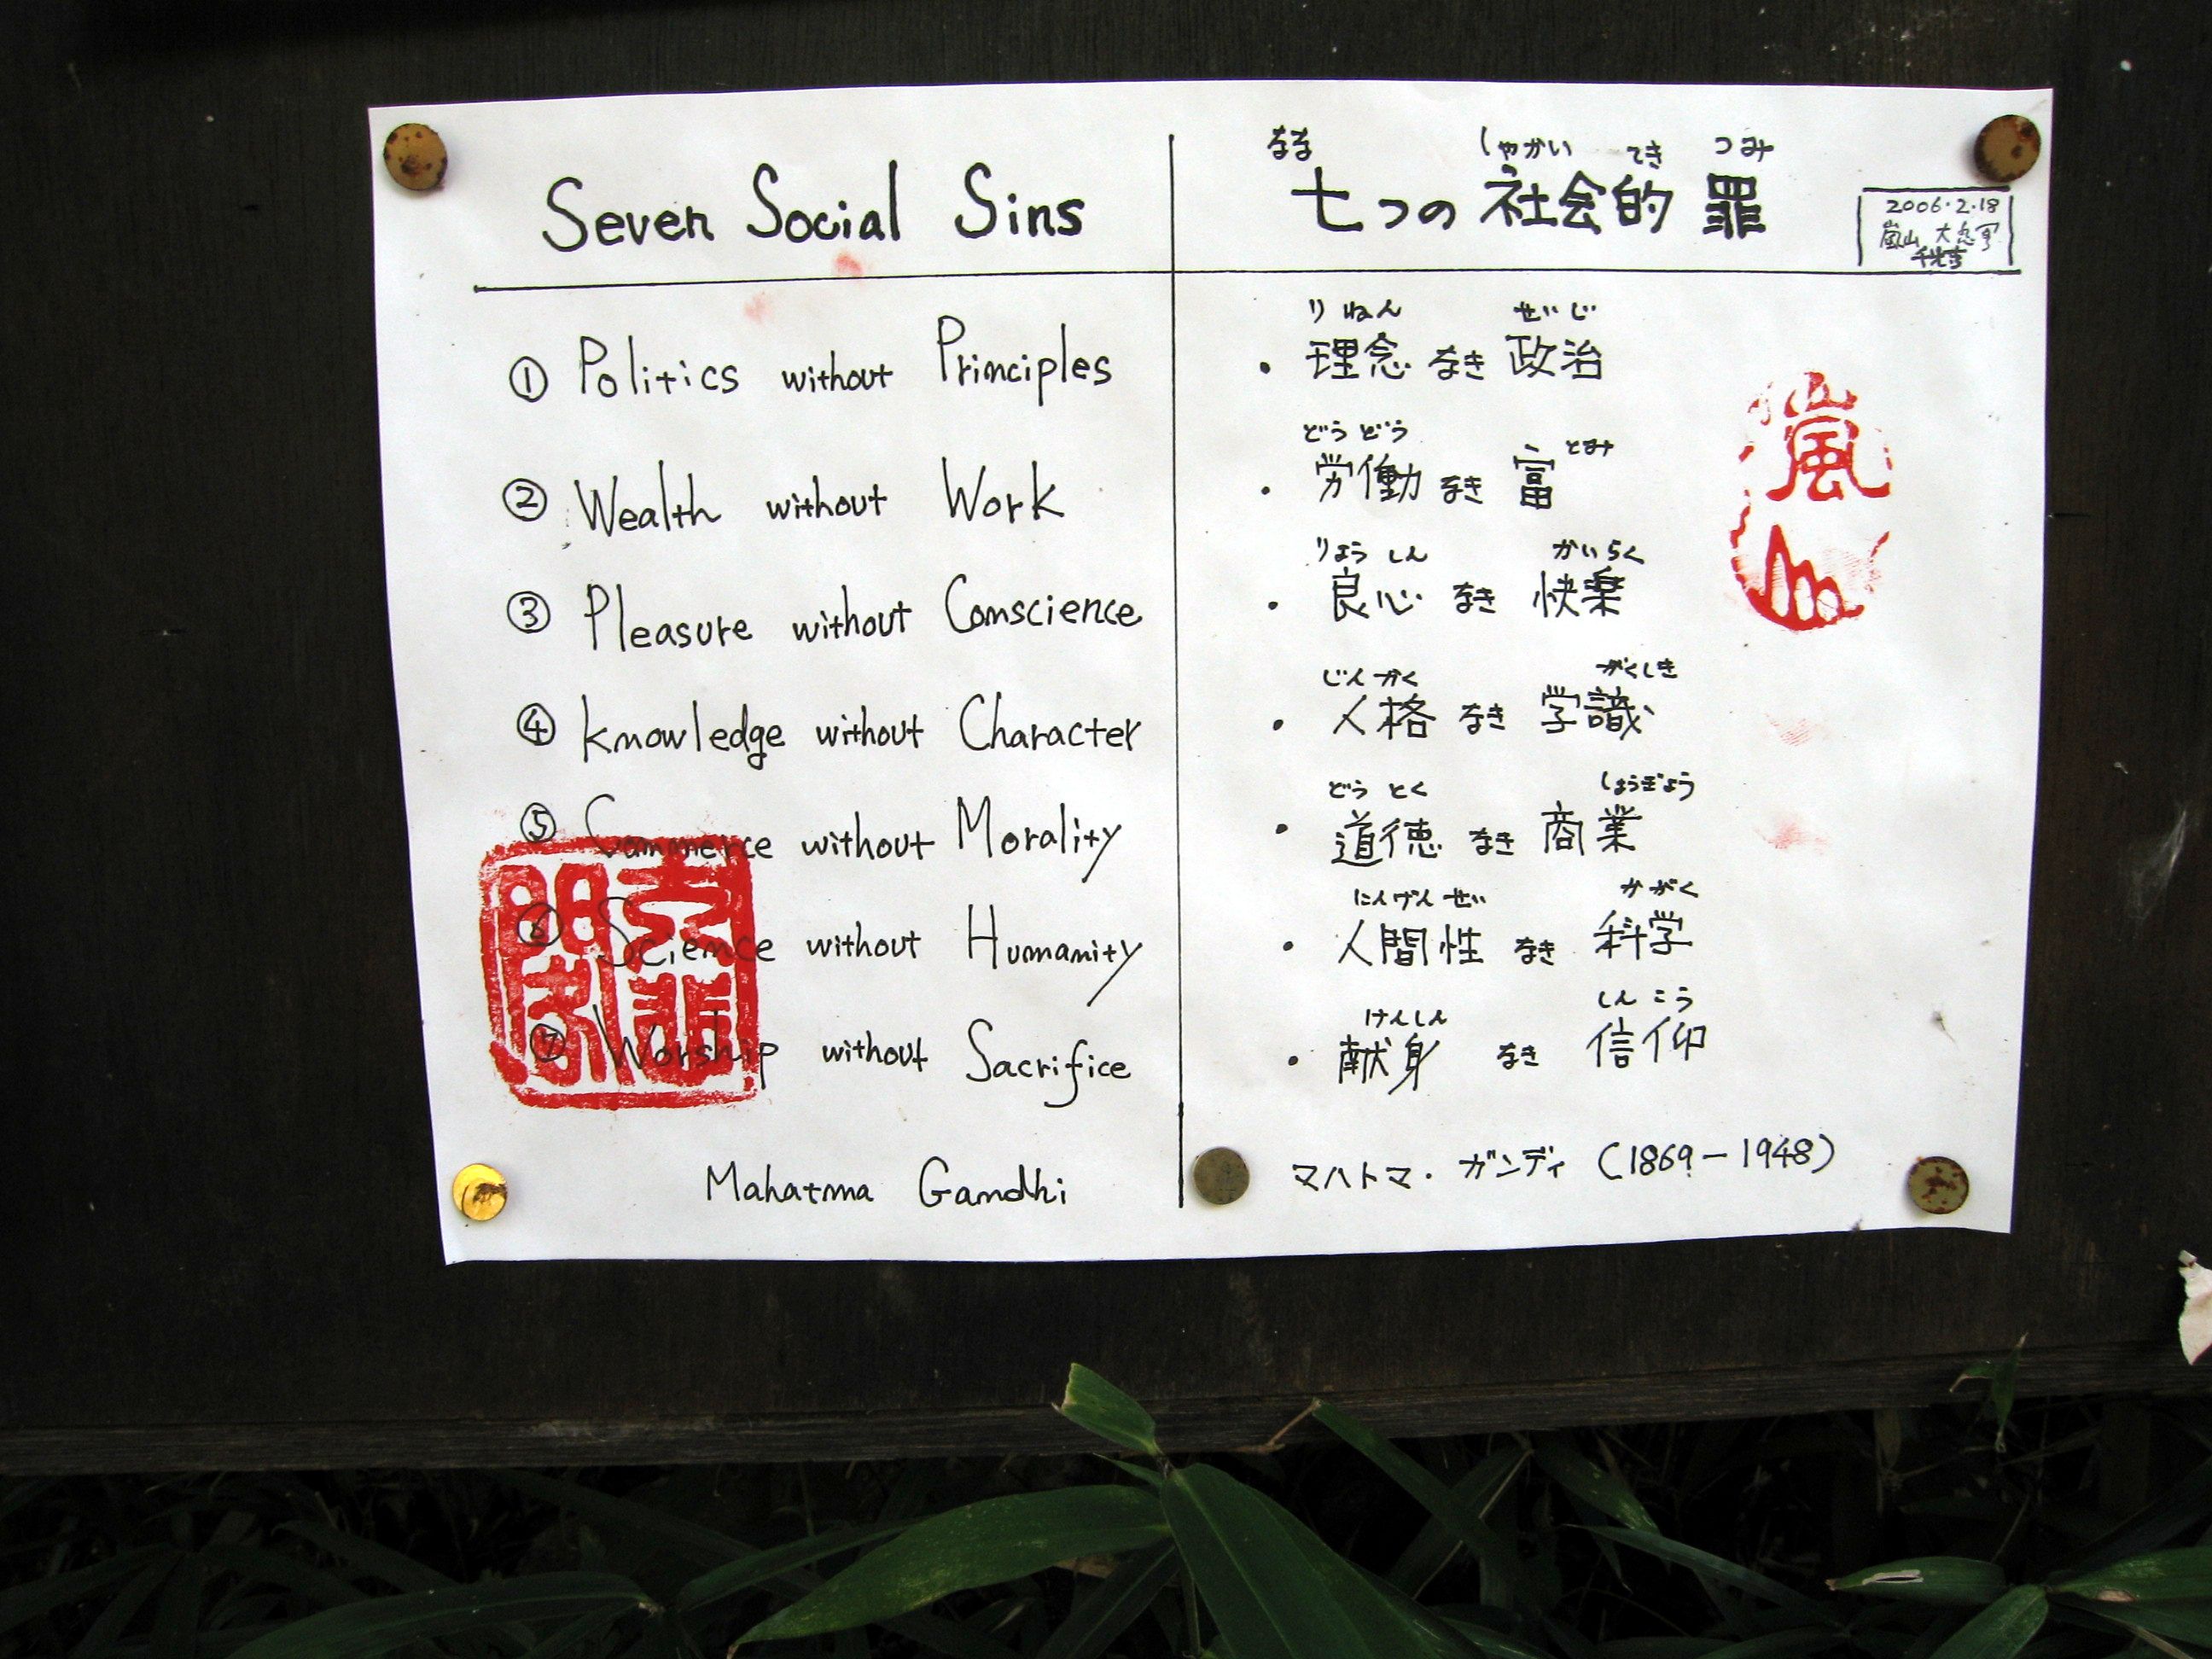 Seven Social Sins
① Politics without Principles
② Wealth without Work
③ Pleasure without Conscience
④ knowledge without Character
⑤ Commerce without Morality
⑥ Science without Humanity
⑦ Worship without Sacrifice
Mahatma Gandhi
なな しゃかい てき つみ
七つの 社会的 罪
2006.2.18
嵐山 大悲閣
千光寺
り ねん せいじ
・理念 なき 政治
どう どう とみ
・労働 なき 富
りょう しん かいらく
・良心 なき 快楽
じん かく がくしき
・人格 なき 学識
どう とく しょうぎょう
・道徳 なき 商業
にんげん せい かがく
・人間性 なき 科学
けんしん しん こう
・献身 なき 信仰
マハトマ・ガンディ (1869-1948)
嵐山
大悲閣